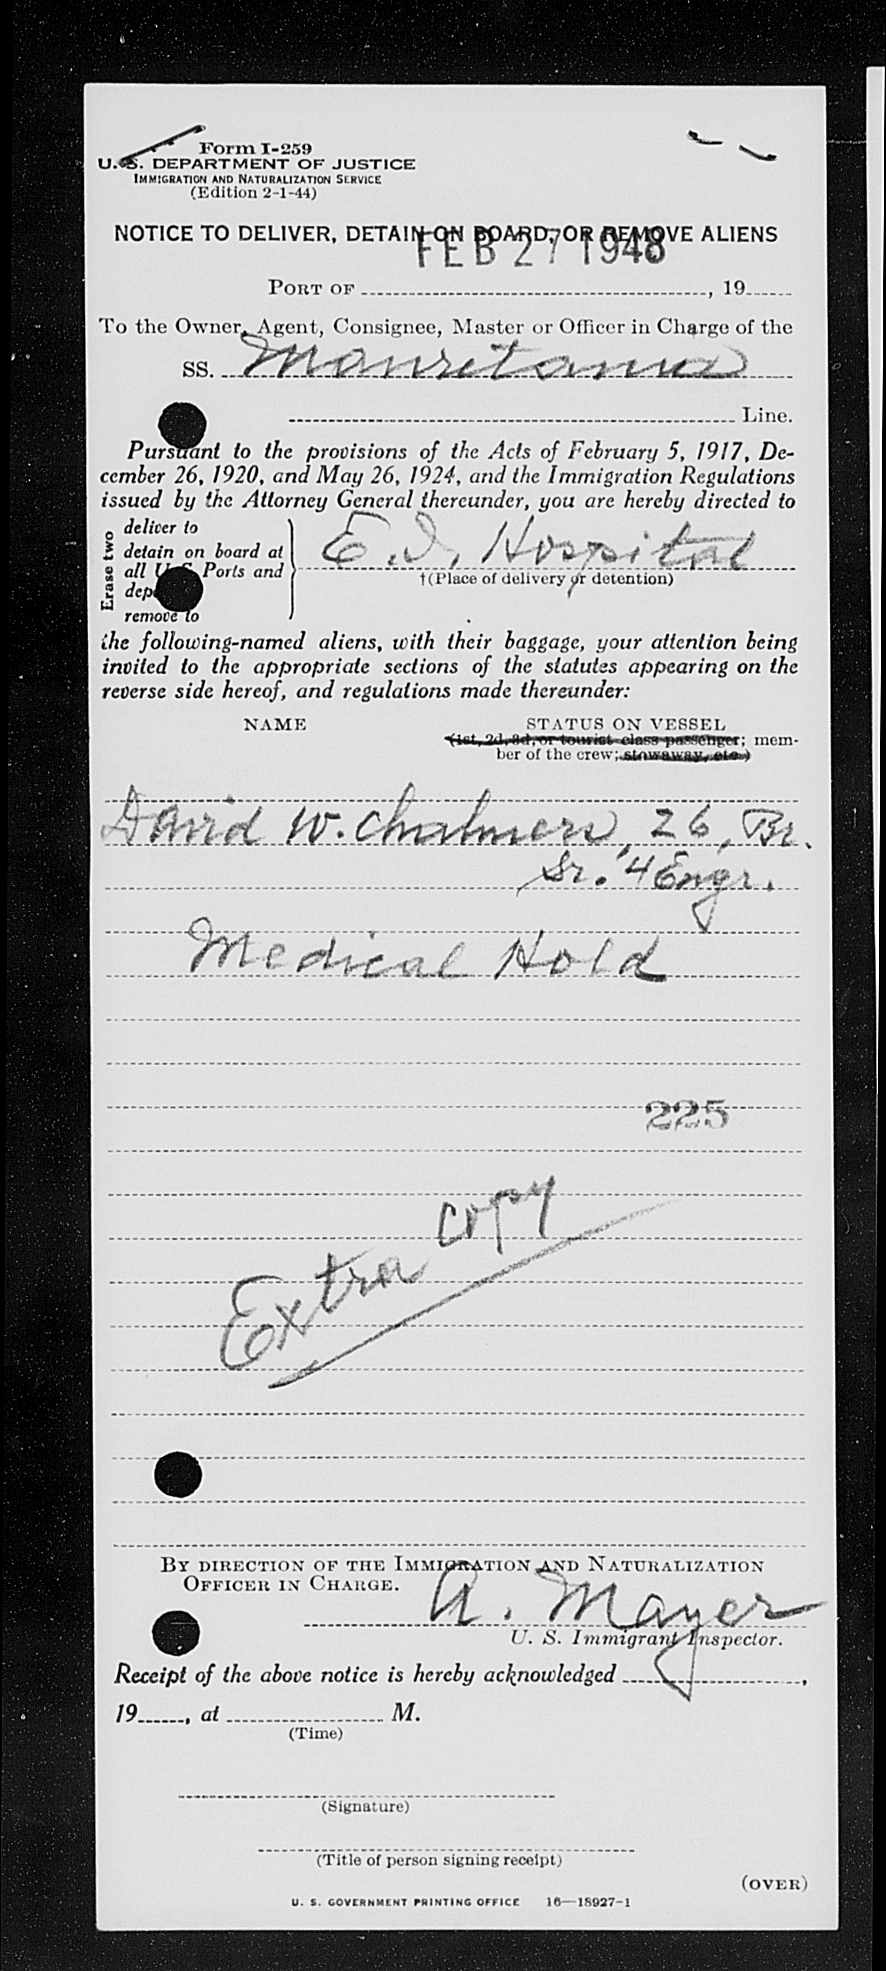 Form I-259
U. S. DEPARTMENT OF JUSTICE
IMMIGRATION AND NATURALIZATION SERVICE
(Edition 2-1-44)
NOTICE TO DELIVER, DETAIN ON BOARD, OR REMOVE ALIENS
FEB 27 1948
PORT OF ________, 19____
To the Owner, Agent, Consignee, Master or Officer in Charge of the
SS. Mauretania
________ Line.
Pursuant to the provisions of the Acts of February 5, 1917, De-
cember 26, 1920, and May 26, 1924, and the Immigration Regulations
issued by the Attorney General thereunder, you are hereby directed to
Erase two
deliver to
detain on board at
all U S Ports and
dep
remove to
E. I. Hospital
†(Place of delivery or detention)
the following-named aliens, with their baggage, your attention being
invited to the appropriate sections of the statutes appearing on the
reverse side hereof, and regulations made thereunder:
NAME STATUS ON VESSEL
(1st, 2d, 3d, or tourist class passenger; mem-
ber of the crew; stowaway, etc.)
David W. Chalmers, 26, Br.
Sr. 4 Engr.
Medical Hold
225
Extra copy
BY DIRECTION OF THE IMMIGRATION AND NATURALIZATION
OFFICER IN CHARGE.
A. Mayer
U. S. Immigrant Inspector.
Receipt of the above notice is hereby acknowledged ________,
19____, at ________ M.
(Time)
(Signature)
(Title of person signing receipt)
(OVER)
U. S. GOVERNMENT PRINTING OFFICE 16—18927-1